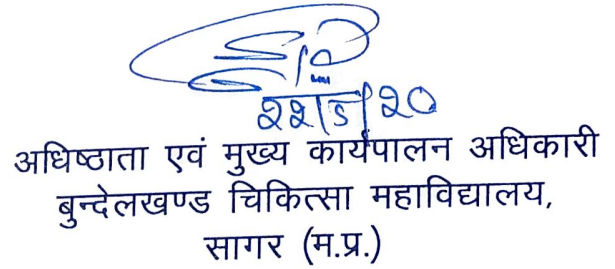 अधिष्ठाता एवं मुख्य कार्यपालन अधिकारी
बुन्देलखण्ड चिकित्सा महाविद्यालय,
सागर (म.प्र.)